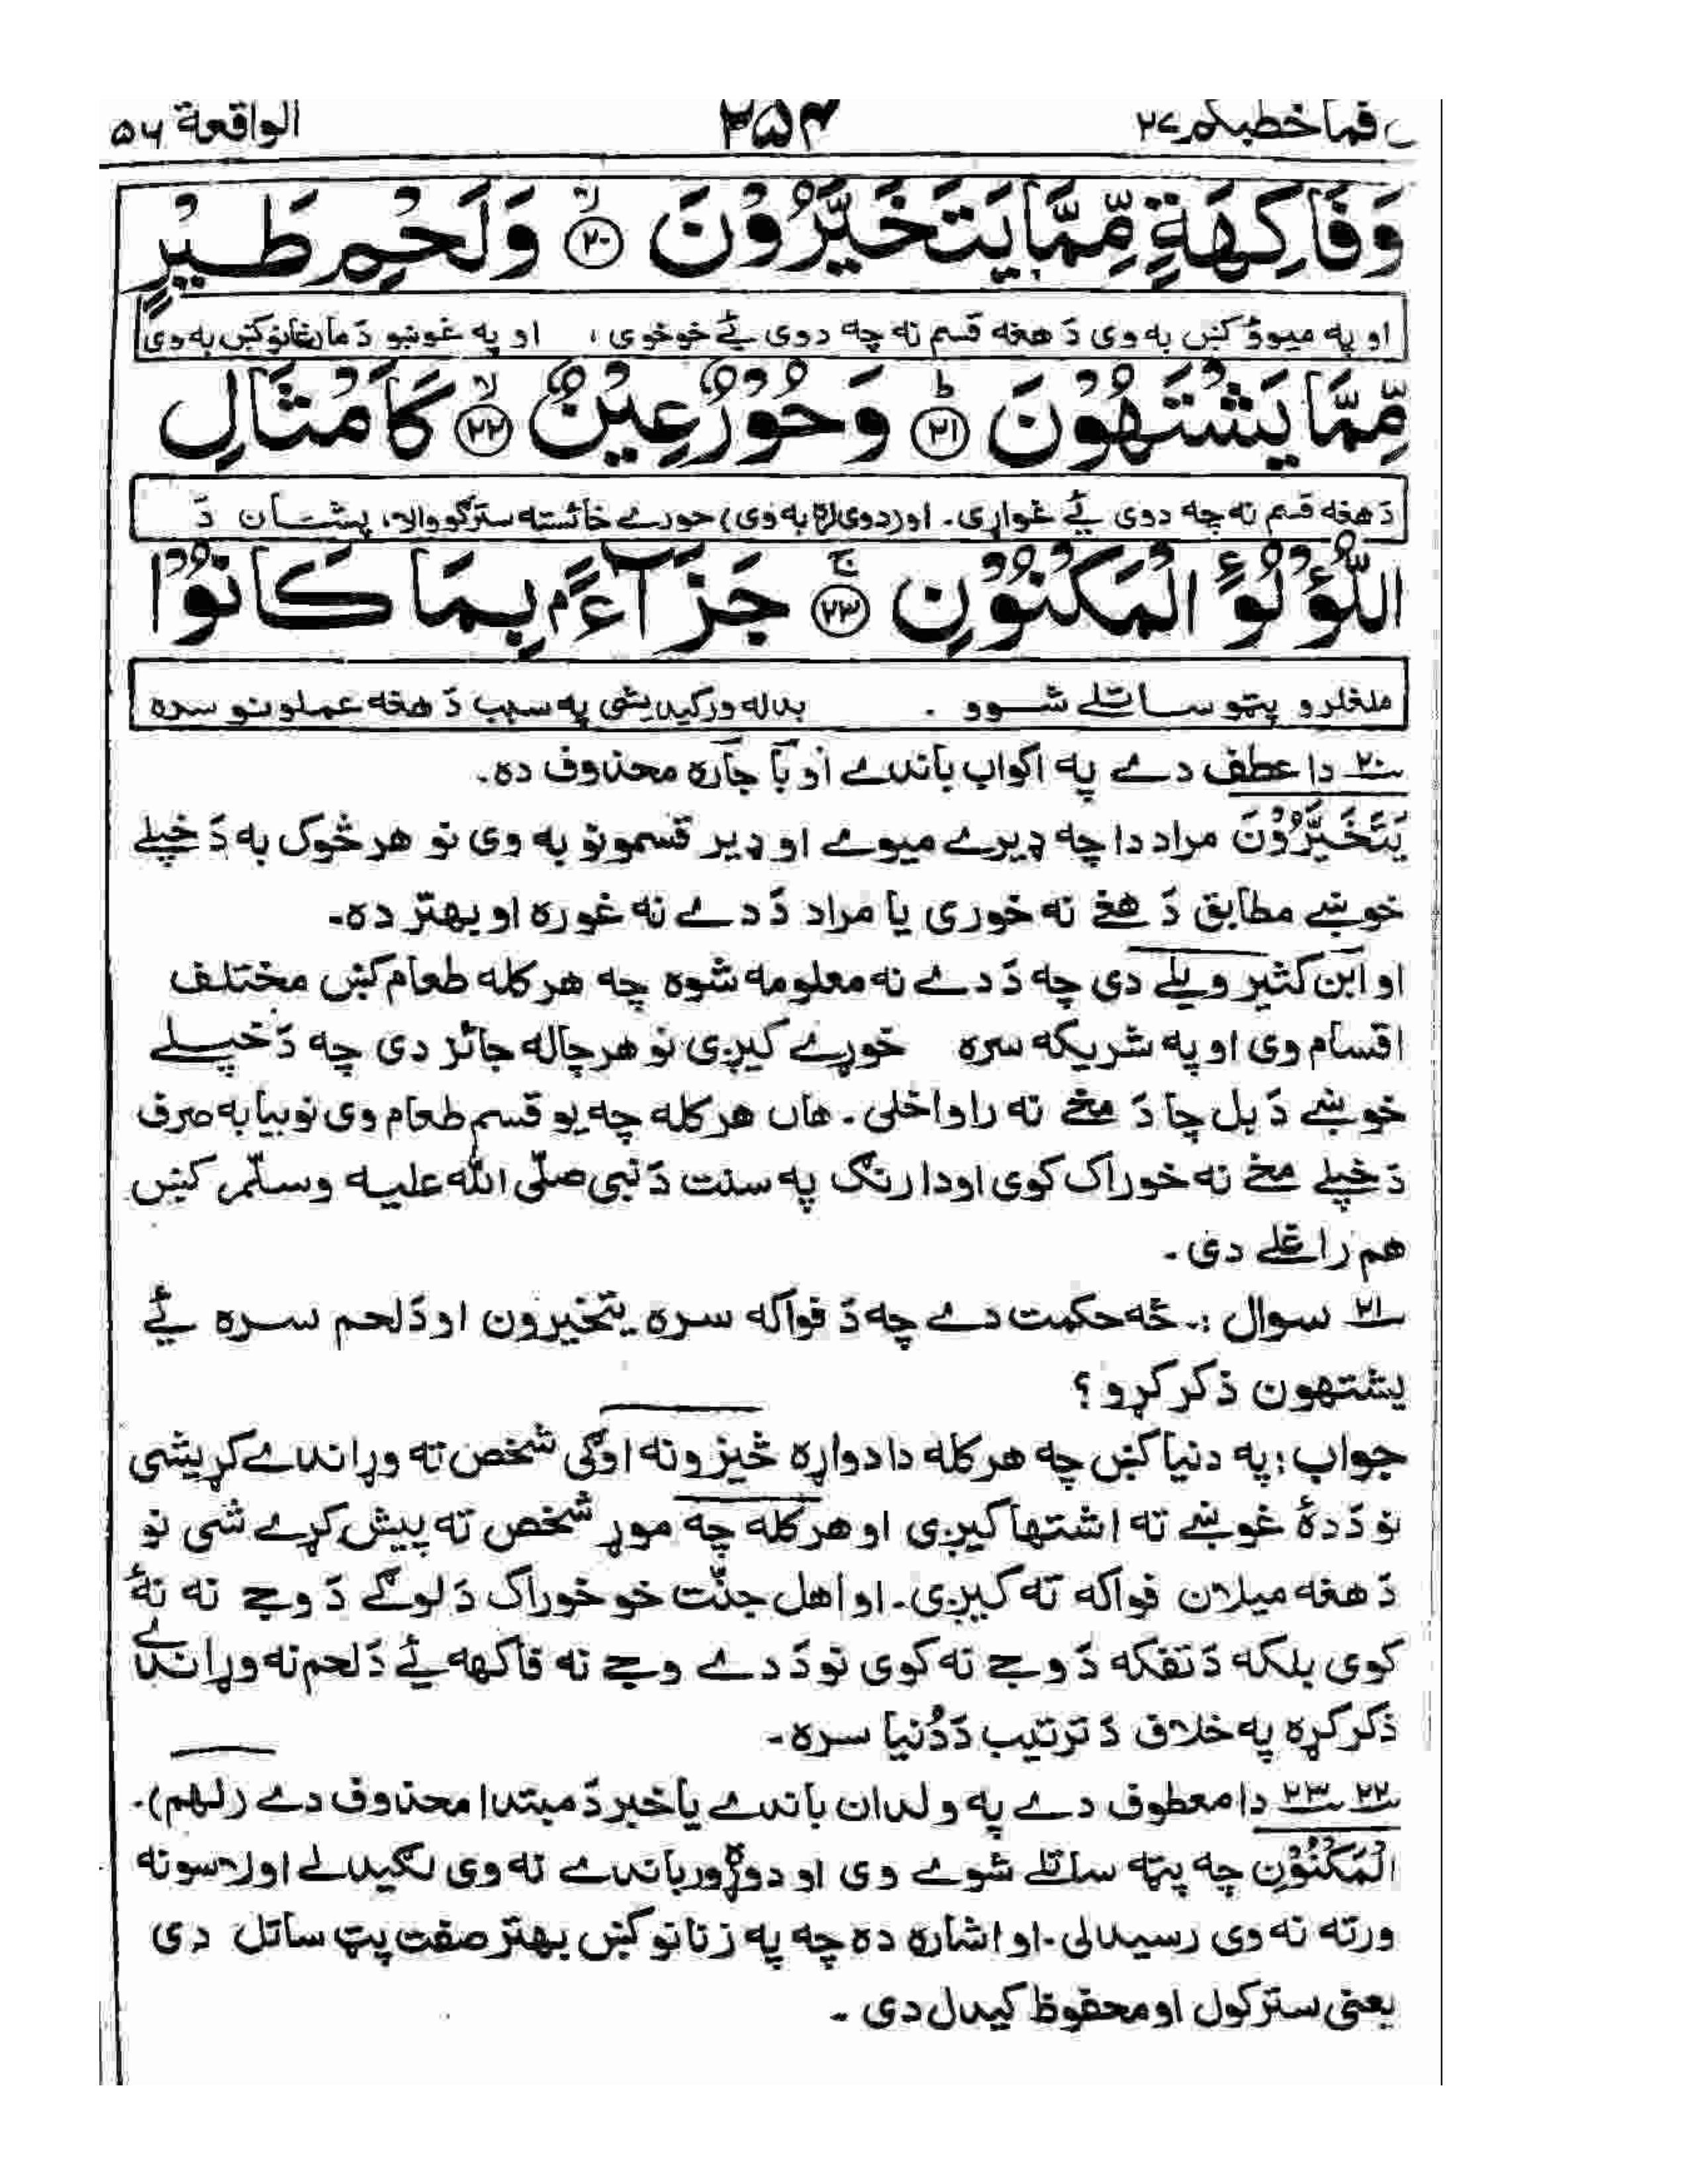 قال فما خطبکم ۲۷ ۲۵۴ الواقعة ۵۶
وَفَاكِهَةٍ مِّمَّا يَتَخَيَّرُوْنَ ۙ﴿۲۰﴾ وَلَحْمِ طَيْرٍ
او په میوؤ کښ به وی دَ هغه قسم نه چه دوی ئے خوخوی، او په غوښو دَ مارغانو کښ به وی
مِّمَّا يَشْتَهُوْنَ ؕ﴿۲۱﴾ وَحُوْرٌ عِيْنٌ ۙ﴿۲۲﴾ كَاَمْثَالِ
دَ هغه قسم نه چه دوی ئے غواړی. او (دوی لره به وی) حورے خائسته سترګو والا، پشتان دَ
اللُّؤْلُؤِ الْمَكْنُوْنِ ۚ﴿۲۳﴾ جَزَآءًۢ بِمَا كَانُوْا
ملغلرو پټو ساتلے شوو . بدله ورکیدیشی په سبب دَ هغه عملونو سره
۲۰ دا عطف دے په اکواب باندے او بَا جاره محذوف ده.
يَتَخَيَّرُوْنَ مراد دا چه ډیرے میوے او ډیر قسمونو به وی نو هر څوک به دَ خپلے
خوښے مطابق دَ هغے نه خوری یا مراد دَ دے نه غوره او بهتر ده۔
او ابن کثیر ویلے دی چه دَ دے نه معلومه شوه چه هر کله طعام کښ مختلف
اقسام وی او په شریکه سره خوړے کیږی نو هر چاله جائز دی چه دَ خپلے
خوښے دَ بل چا دَ مخے نه راواخلی. هاں هر کله چه یو قسم طعام وی نو بیا به صرف
دَ خپلے مخے نه خوراک کوی او دا رنګ په سنت دَ نبی صلّی اللّه علیه وسلّم کښ
هم راغلے دی .
۲۱ سوال :۔ څه حکمت دے چه دَ فواکه سره یتخیرون او دَ لحم سره ئے
یشتهون ذکر کړو ؟
جواب : په دنیا کښ چه هر کله دا دواړه څیزونه اوګی شخص ته وړاندے کړیشی
نو دَ دهٔ غوښے ته اشتها کیږی او هر کله چه موړ شخص ته پیش کړے شی نو
دَ هغه میلان فواکه ته کیږی۔ او اهل جنّت خو خوراک دَ لوګے دَ وجے نه نهٔ
کوی بلکه دَ تفکه دَ وجے نه کوی نو دَ دے وجے نه فاکهه ئے دَ لحم نه وړاندے
ذکر کړه په خلاف دَ ترتیب دَ دُنیا سره۔
۲۲ ۲۳ دا معطوف دے په ولدان باندے یا خبر دَ مبتدا محذوف دے (لهم).
الْمَكْنُوْنِ چه پټه ساتلے شوے وی او دوړه ور باندے نه وی لګیدلے او لاسونه
ورته نه وی رسیدلی. او اشاره ده چه په زنانو کښ بهتر صفت پټ ساتل دی
یعنی ستر کول او محفوظ کیدل دی ۔